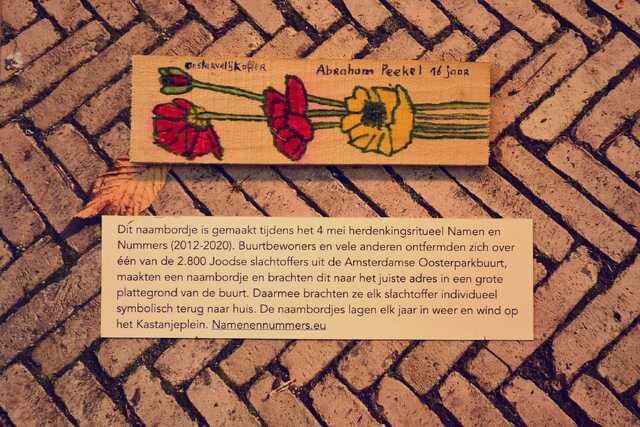 onsterveljk offer
Abraham Peekel 16 jaar
Dit naambordje is gemaakt tijdens het 4 mei herdenkingsritueel Namen en
Nummers (2012-2020). Buurtbewoners en vele anderen ontfermden zich over
één van de 2.800 Joodse slachtoffers uit de Amsterdamse Oosterparkbuurt,
maakten een naambordje en brachten dit naar het juiste adres in een grote
plattegrond van de buurt. Daarmee brachten ze elk slachtoffer individueel
symbolisch terug naar huis. De naambordjes lagen elk jaar in weer en wind op
het Kastanjeplein. Namenennummers.eu